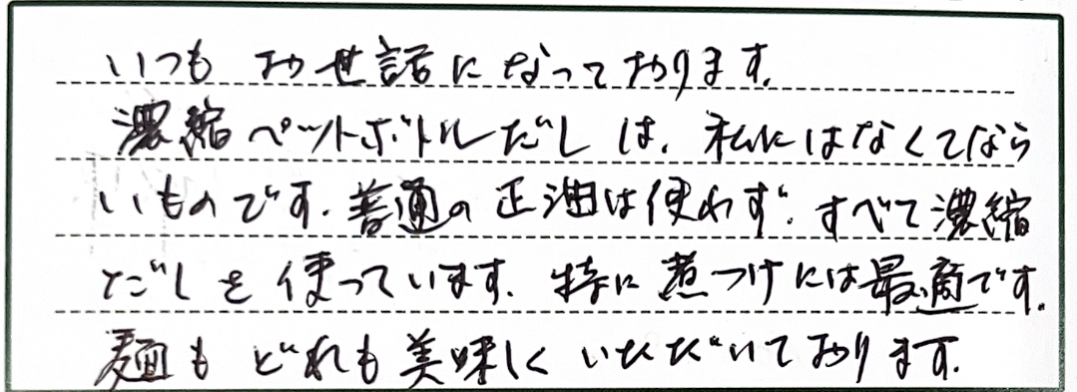 いつもお世話になっております。
濃縮ペットボトルだしは、私にはなくてなら
いものです。普通の正油は使わず、すべて濃縮
だしを使っています。特に煮つけには最適です。
麺もどれも美味しくいただいております。